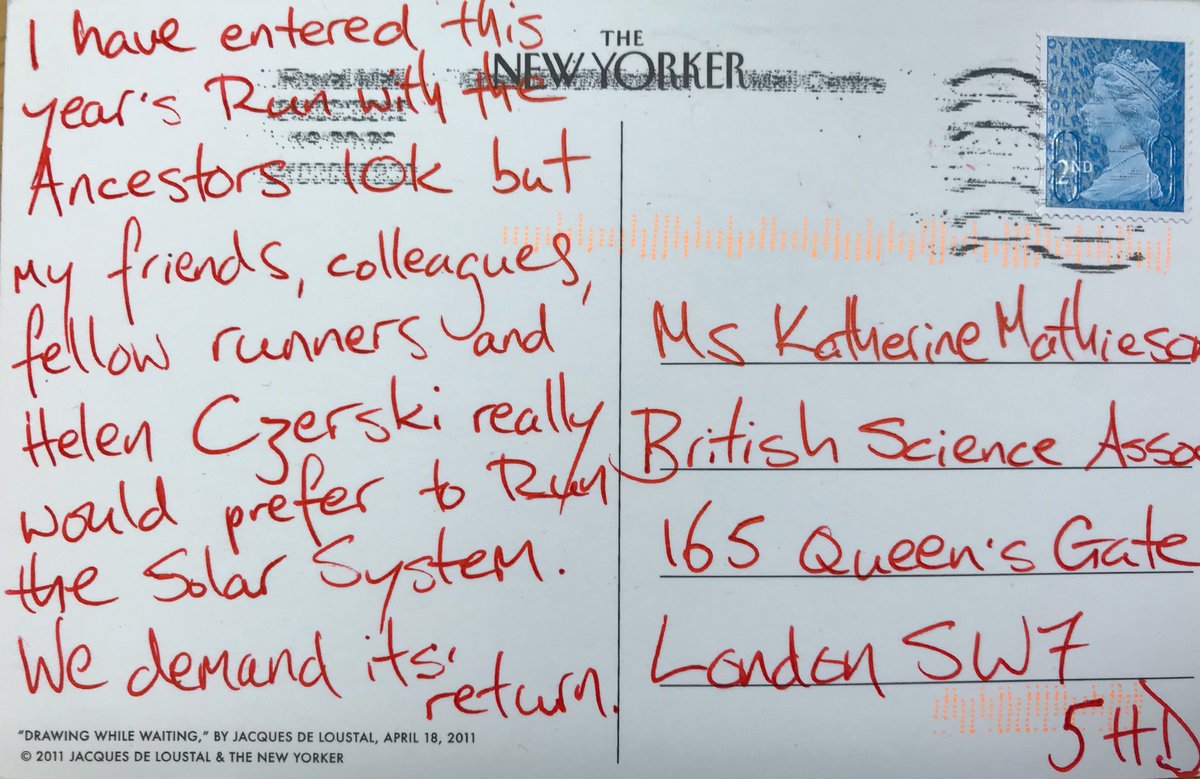 I have entered this
year's Run with the
Ancestors 10k but
my friends, colleagues,
fellow runners and
Helen Czerski really
would prefer to Run
the Solar System.
We demand its'
return.
"DRAWING WHILE WAITING," BY JACQUES DE LOUSTAL, APRIL 18, 2011
© 2011 JACQUES DE LOUSTAL & THE NEW YORKER
THE
NEW YORKER
2ND
Ms Katherine Mathieso
British Science Asso
165 Queen's Gate
London SW7
5HD